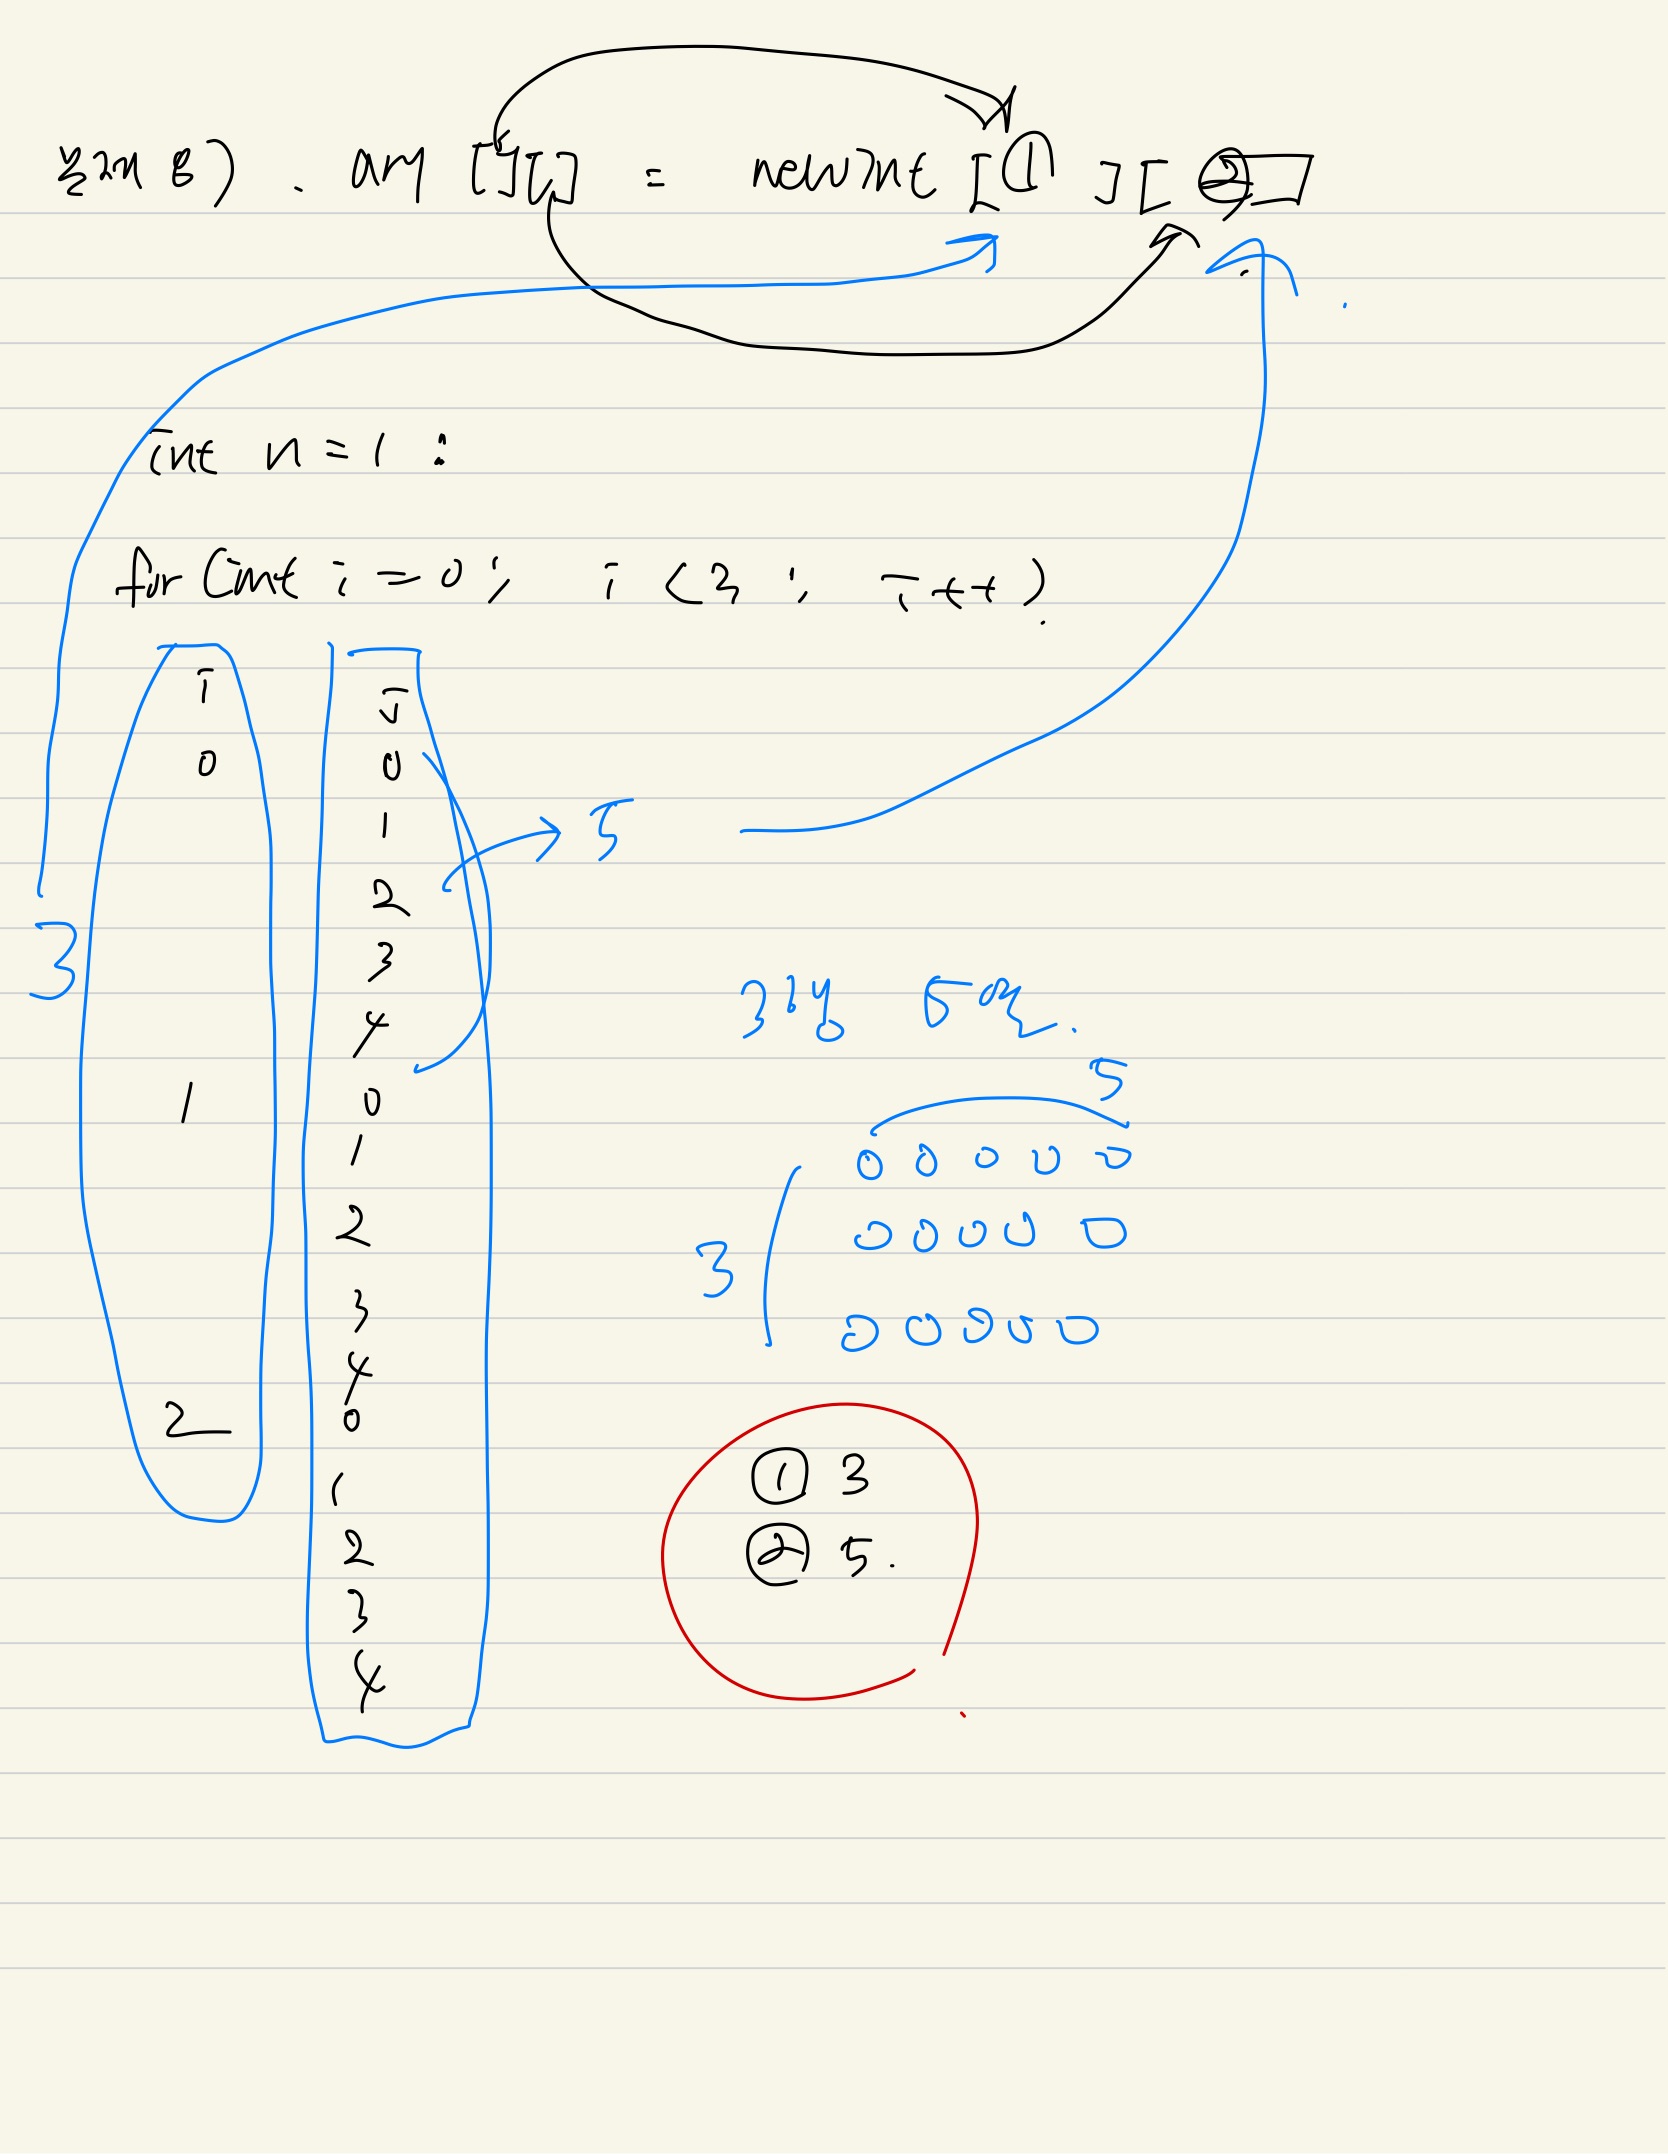 문제 8) . arr [i][j] = new int [① ][ ②]
int n = 1 ;
for (int i = 0 ; i < 3 ; i++)
i j
0 0
1
2
3
4
1 0
1
2
3
4
2 0
1
2
3
4
3
5
3행 5열.
5
0 0 0 0 0
3
0 0 0 0 0
0 0 0 0 0
① 3
② 5.